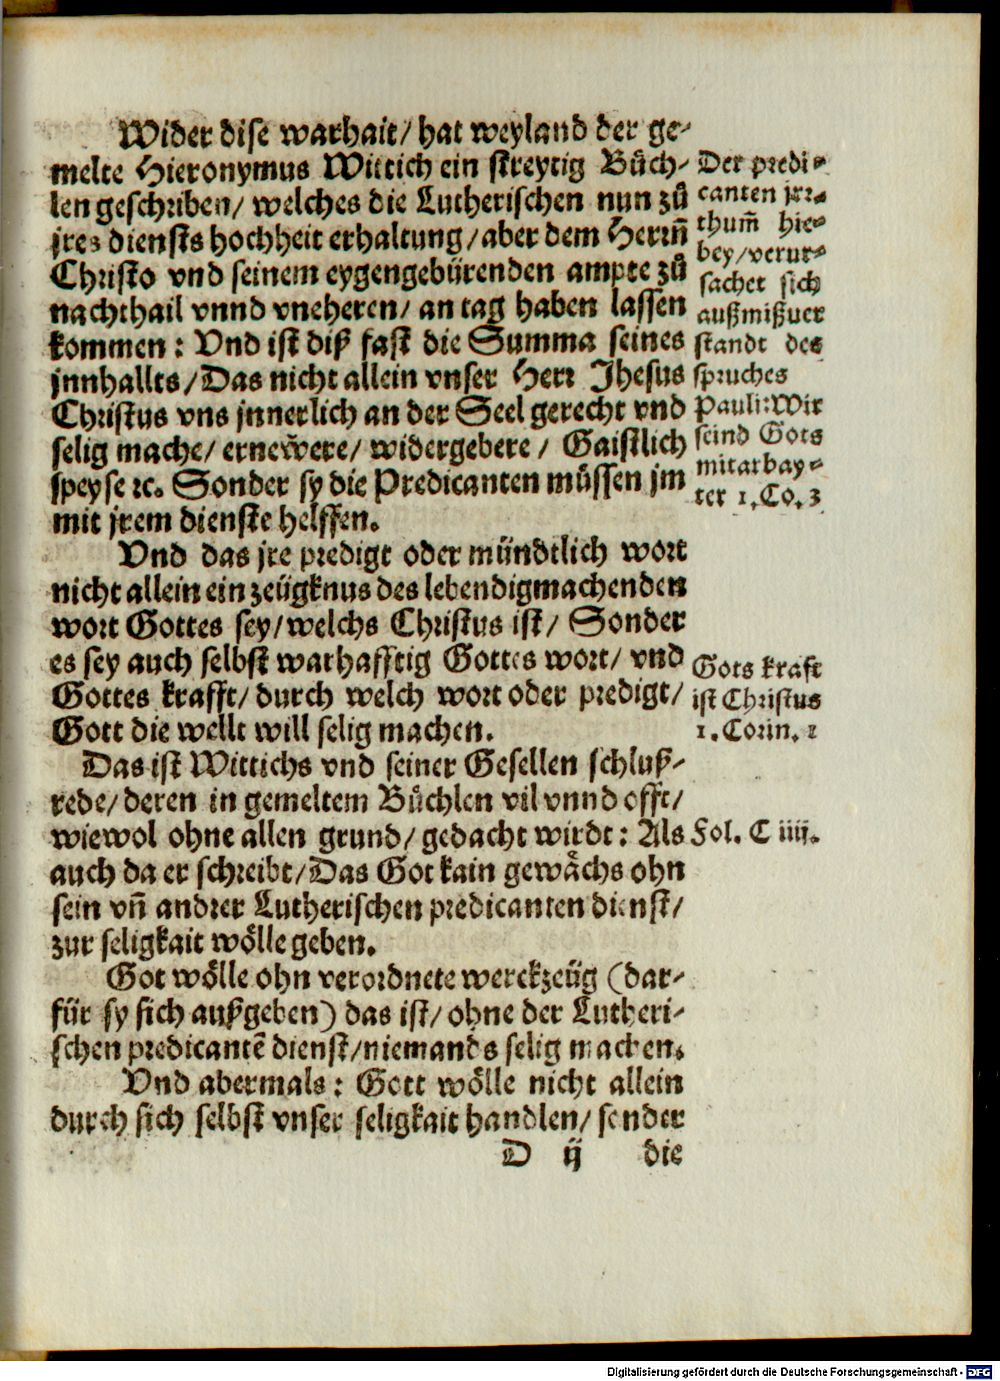 Wider dise warhait/ hat weyland der ge-
melte Hieronymus Wittich ein streytig Bůch-
len geschriben/ welches die Lutherischen nun zů
jres diensts hochheit erhaltung/aber dem Herrn̄
Christo vnd seinem eygengebürenden ampte zů
nachthail vnnd vneheren/ an tag haben lassen
kommen: Vnd ist diß fast die Summa seines
jnnhallts/Das nicht allein vnser Herr Jhesus
Christus vns jnnerlich an der Seel gerecht vnd
selig mache/ ernewere/ widergebere/ Gaistlich
speyse ꝛc. Sonder sy die Predicanten müssen jm
mit jrem dienste helffen.
Vnd das jre predigt oder mündtlich wort
nicht allein ein zeügknus des lebendigmachenden
wort Gottes sey/welchs Christus ist/ Sonder
es sey auch selbst warhafftig Gottes wort/ vnd
Gottes krafft/ durch welch wort oder predigt/
Gott die wellt will selig machen.
Das ist Wittichs vnd seiner Gesellen schluß-
rede/deren in gemeltem Bůchlen vil vnnd offt/
wiewol ohne allen grund/ gedacht wirdt: Als
auch da er schreibt/Das Got kain gewåchs ohn
sein vn̄ andrer Lutherischen predicanten dienst/
zur seligkait wölle geben.
Got wölle ohn verordnete werckzeüg (dar-
für sy sich außgeben) das ist/ ohne der Lutheri-
schen predicantē dienst/niemands selig machen.
Vnd abermals: Gott wölle nicht allein
durch sich selbst vnser seligkait handlen/ sonder
D ij die
Der predi-
canten jrr-
thum̄ hie-
bey/verur-
sachet sich
außmißuer
standt des
spruches
Pauli:Wir
seind Gots
mitarbay-
ter 1.Co. 3
Gots kraft
ist Christus
1. Corin. 1
Fol. C iiij.
Digitalisierung gefördert durch die Deutsche Forschungsgemeinschaft - DFG